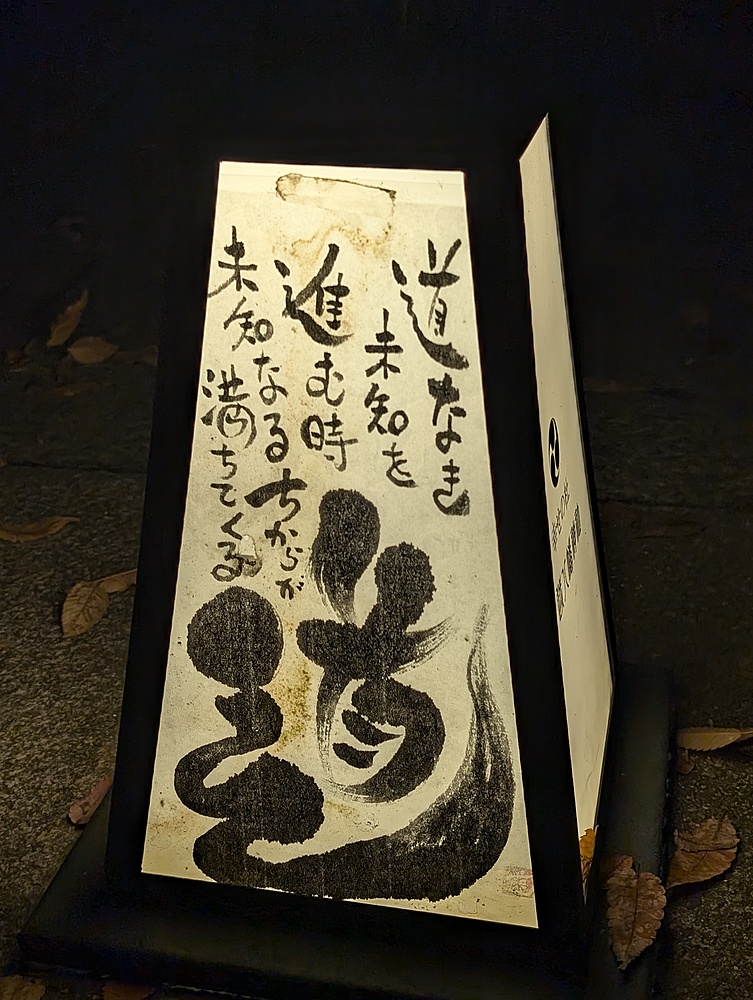 道なき
未知を
進む時
未知なる
ちからが
満ちてくる
道